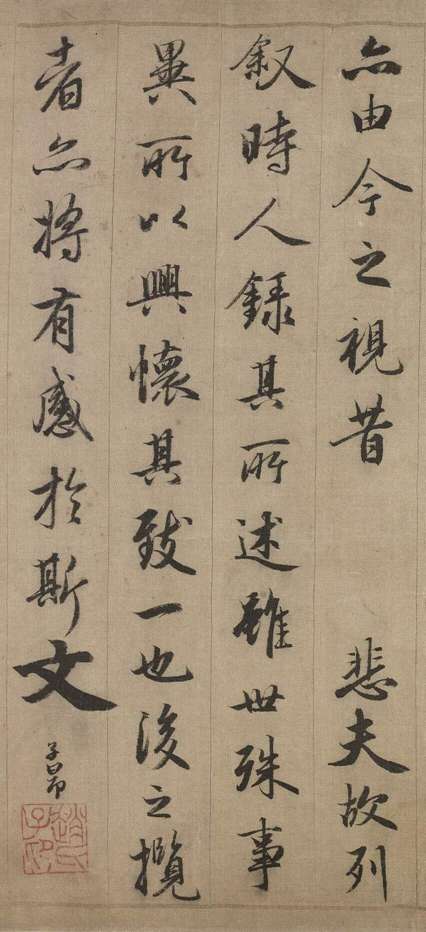 亦由今之視昔　悲夫故列
叙時人録其所述雖世殊事
異所以興懷其致一也後之攬
者亦將有感於斯文
子昂
趙氏子昂